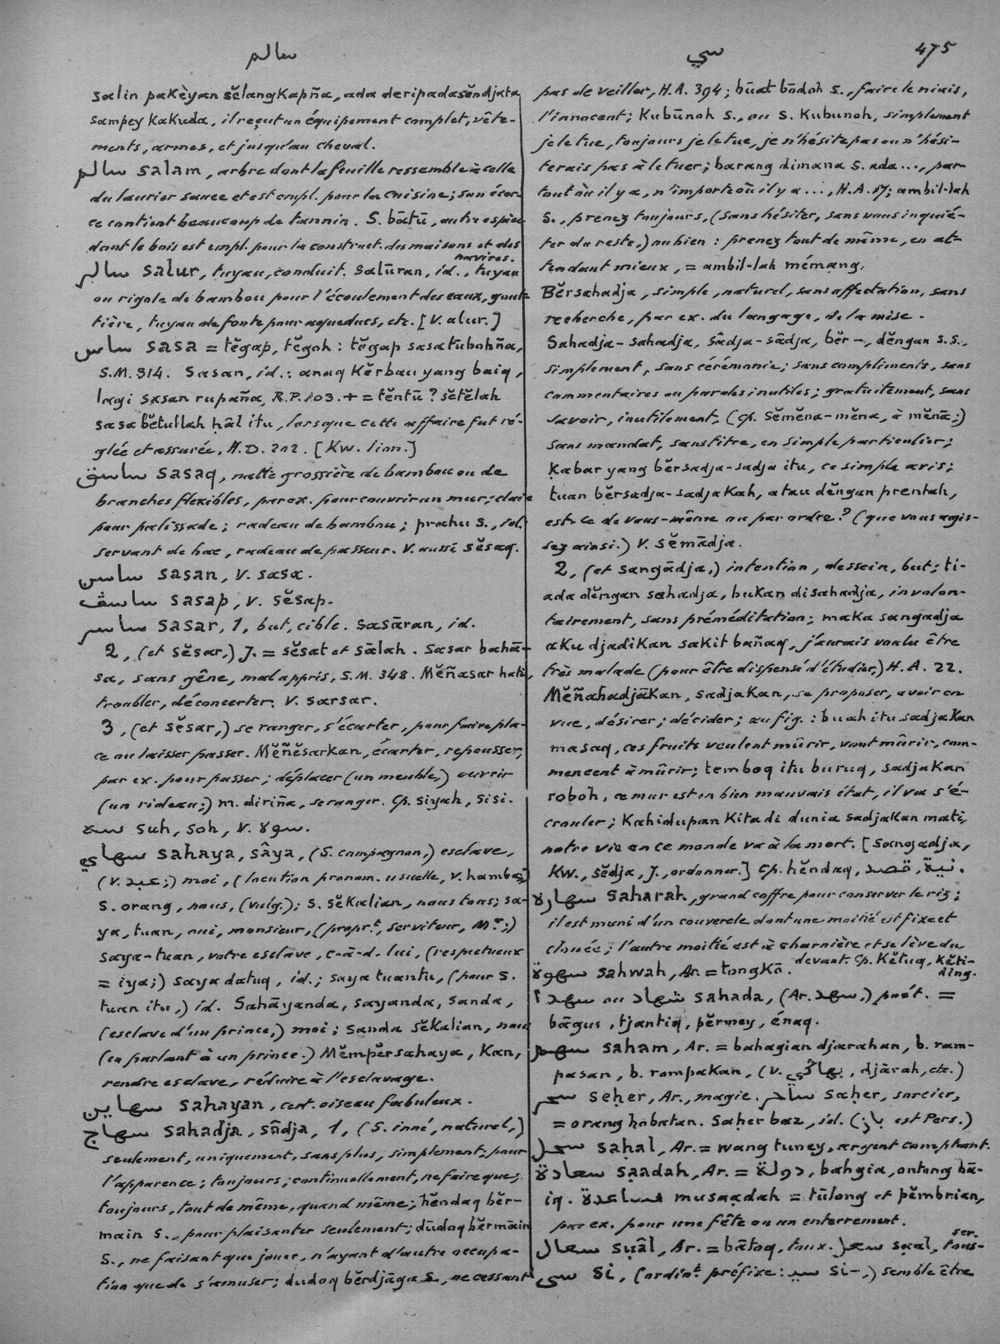 سالم
سي
475
salin pakèyan sĕlangkapña, ada deripada sĕndjata
sampey kakuda, il reçut un équipement complet, vête-
ments, armes, et jusqu'au cheval.
سالم salam, arbre dont la feuille ressemble à celle
du laurier sauce et est empl. pour la cuisine; son écor-
ce contient beaucoup de tannin. S. bātū, autre espèce
dont le bois est empl. pour la construct. des maisons et des
navires.
سالر salur, tuyau, conduit. Salūran, id., tuyau
ou rigole de bambou pour l'écoulement des eaux, gout-
tière, tuyau de fonte pour aqueducs, etc. [V. alur.]
ساس sasa = tĕgap, tĕgoh: tĕgap sasa tubohña,
S.M. 314. Sasan, id.: anaq kĕrbau yang baiq,
lagi sasan rupaña, R.P. 103. + = tĕntū? sĕtĕlah
sasa bĕtullah ḥâl itu, lorsque cette affaire fut ré-
glée et assurée, H.D. 202. [Kw. lion.]
ساسق sasaq, natte grossière de bambou ou de
branches flexibles, par ex. pour couvrir un mur; claie
pour palissade; radeau de bambou; prahu s., id.
servant de bac, radeau de passeur. V. aussi sĕsaq.
ساسن sasan, v. sasa.
ساسڤ sasap, v. sĕsap.
ساسر sasar, 1, but, cible. Sasāran, id.
2, (et sĕsar,) J. = sĕsat et sālah. Sasar bahā-
sa, sans gêne, mal appris, S.M. 348. Mĕñasar hati,
troubler, déconcerter. V. sarsar.
3, (et sĕsar,) se ranger, s'écarter, pour faire pla-
ce ou laisser passer. Mĕñĕsarkan, écarter, repousser,
par ex. pour passer; déplacer (un meuble,) ouvrir
(un rideau;) m. diriña, se ranger. Cp. siyah, sisi.
سه suh, soh, v. سوه.
سهاي sahaya, sâya, (S. compagnon,) esclave,
(v. عبد;) moi, (locution pronom. usuelle, v. hamba;)
s. orang, nous, (vulg.); s. sĕkalian, nous tous; sa-
ya, tuan, oui, monsieur, (propr.t, serviteur, M.r;)
saya-tuan, votre esclave, c-à-d. lui, (respectueux
= iya;) saya datuq, id.; saya tuantu, (pour s.
tuan itu,) id. Sahāyanda, sayanda, sanda,
(esclave d'un prince,) moi; sanda sĕkalian, nous
(en parlant à un prince.) Mĕmpĕrsahaya, kan,
rendre esclave, réduire à l'esclavage.
سهاين sahayan, cert. oiseau fabuleux.
سهاج sahadja, sâdja, 1, (S. inné, naturel,)
seulement, uniquement, sans plus, simplement; pour
l'apparence; toujours; continuellement, ne faire que;
toujours, tout de même, quand même; hĕndaq bĕr-
main s., pour plaisanter seulement; dūdoq bĕrmāin
s., ne faisant que jouer, n'ayant d'autre occupa-
tion que de s'amuser; dudoq bĕrdjāga s., ne cessant
pas de veiller, H.A. 394; būat bōdoh s., faire le niais,
l'innocent; kubūnoh s., ou s. kubunoh, simplement
je le tue, toujours je le tue, je n'hésite pas ou n'hési-
terais pas à le tuer; barang dimana s. ada..., par-
tout où il y a, n'importe où il y a..., H.A. 17; ambil-lah
s., prenez toujours, (sans hésiter, sans vous inquié-
ter du reste,) ou bien: prenez tout de même, en at-
tendant mieux, = ambil-lah mémang.
Bĕrsahadja, simple, naturel, sans affectation, sans
recherche, par ex. du langage, de la mise.
Sahadja-sahadja, sâdja-sâdja, bĕr-, dĕngan s.s.,
simplement, sans cérémonie; sans compliments, sans
commentaires ou paroles inutiles; gratuitement, sans
savoir, inutilement, (cp. sĕmĕna-mĕna, à mĕnā;)
sans mandat, sans titre, en simple particulier;
ķabar yang bĕrsadja-sadja itu, ce simple avis;
tuan bĕrsadja-sadjakah, atau dĕngan prentah,
est-ce de vous-même ou par ordre? (que vous agis-
sez ainsi.) V. sĕmādja.
2, (et sangādja,) intention, dessein, but; ti-
ada dĕngan sahadja, bukan disahadja, involon-
tairement, sans préméditation; maka sangadja
aku djadikan sakit bañaq, j'aurais voulu être
très malade (pour être dispensé d'étudier,) H.A. 22.
Mĕñahadjākan, sadjakan, se proposer, avoir en
vue, désirer; décider; au fig.: buah itu sadjakan
masaq, ces fruits veulent mûrir, vont mûrir, com-
mencent à mûrir; temboq itu buruq, sadjakan
roboh, ce mur est en bien mauvais état, il va s'é-
crouler; kahidupan kita di dunia sadjakan mati,
notre vie en ce monde va à la mort. [Sangadja,
Kw., sĕdja, J., ordonner.] Cp. hĕndaq, نية, قصد.
سهاره saharah, grand coffre pour conserver le riz;
il est muni d'un couvercle dont une moitié est fixe et
clouée; l'autre moitié est à charnière et se lève du
devant. Cp. kĕtuq, kĕti-
ding.
سهوة sahwah, Ar. = tongkō.
سهد ou شهاد sahada, (Ar. سهد,) poét. =
bāgus, tjantiq, pĕrmey, énaq.
سهم saham, Ar. = bahagian djarahan, b. ram-
pasan, b. rampakan, (v. بهاڬي, djārah, etc.)
سحر seḥer, Ar., magie. ساحر saḥer, sorcier,
= orang hobatan. Saḥer baz, id. (باز est Pers.)
سحل saḥal, Ar. = wang tuney, argent comptant.
سعادة saạdah, Ar. = دولة, bahgia, ontong bā-
iq. مساعدة musaạdah = tūlong et pĕmbrian,
par ex. pour une fête ou un enterrement.
سعال suậl, Ar. = bātoq, toux. سعل saạl, tous-
ser.
سي si, (ordin.t préfixe: سـ si-,) semble être